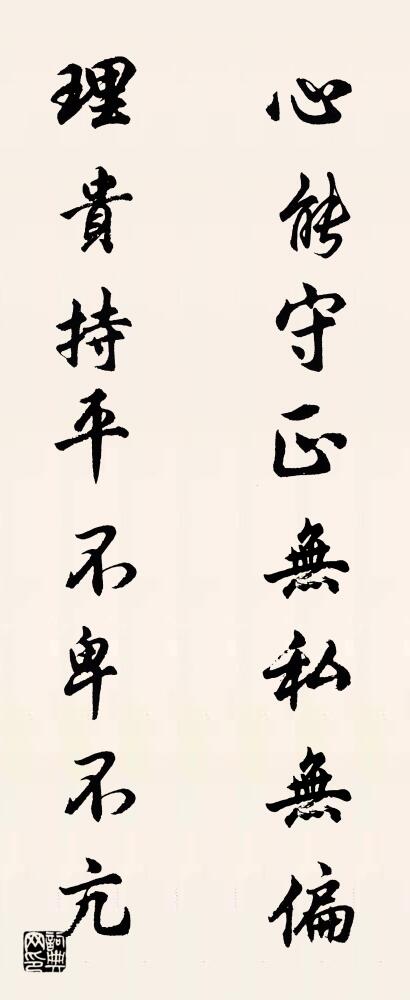 心能守正無私無偏
理貴持平不卑不亢
詞典網印